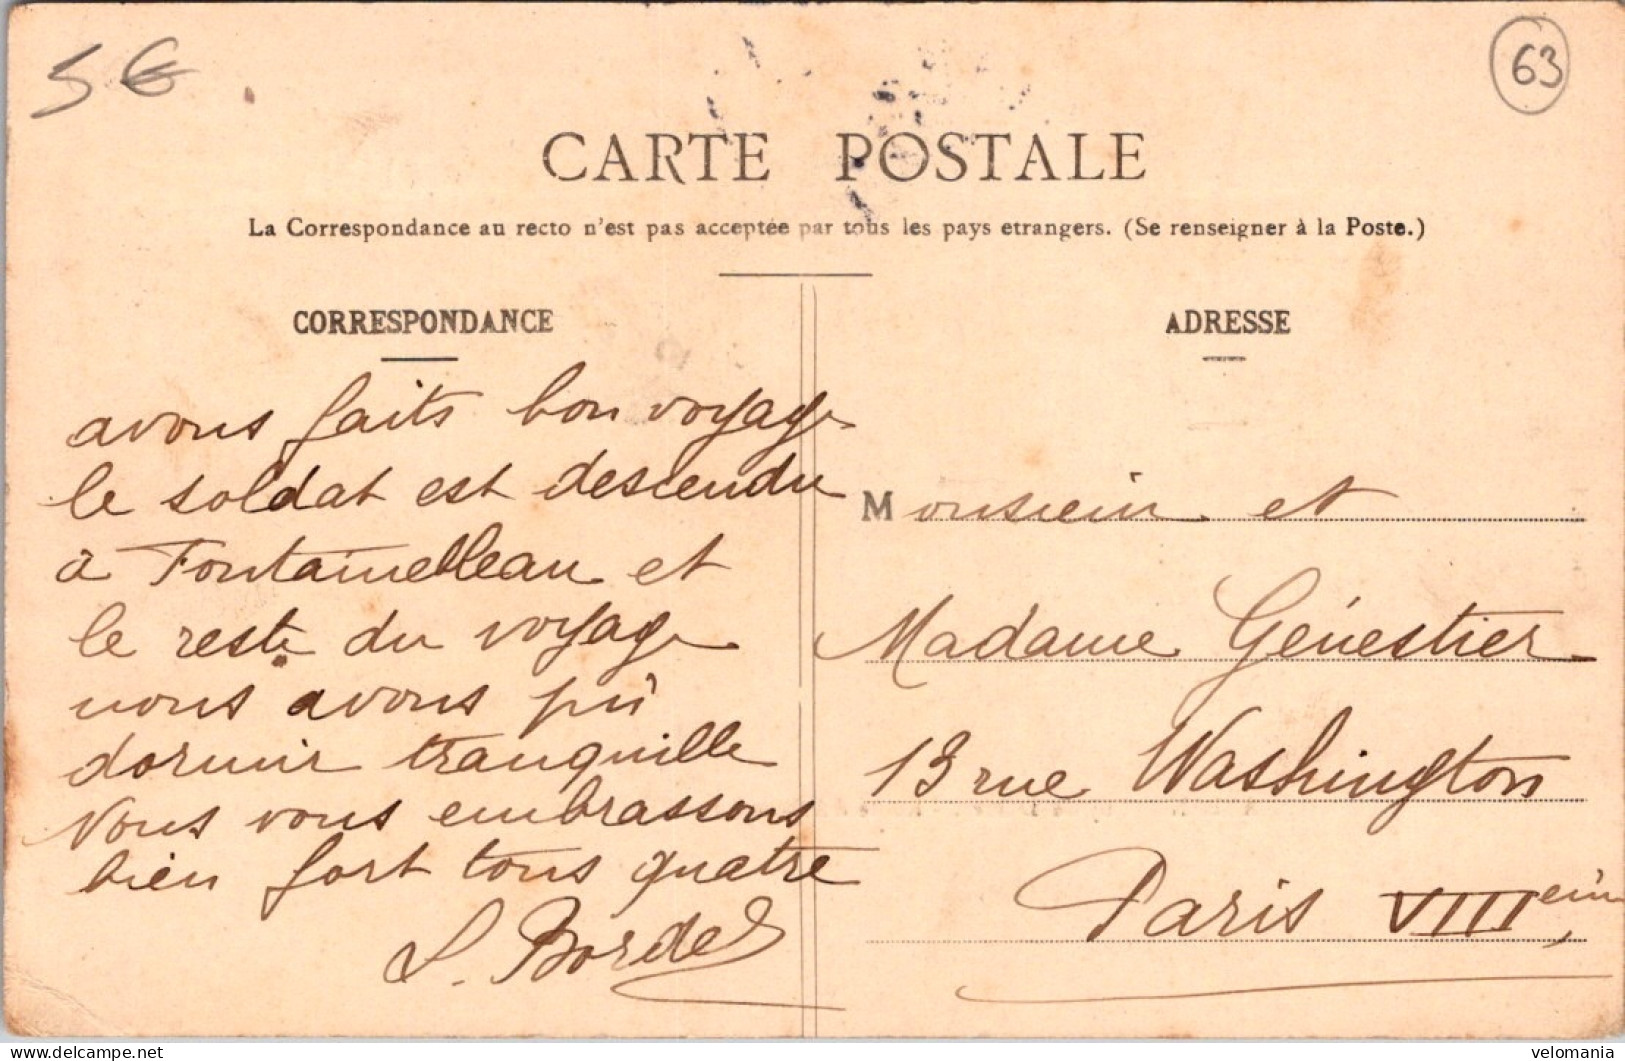 5€
63
CARTE POSTALE
La Correspondance au recto n'est pas acceptée par tous les pays etrangers. (Se renseigner à la Poste.)
CORRESPONDANCE
avons faits bon voyage
le soldat est descendu
à Fontainebleau et
le reste du voyage
nous avons pu
dormir tranquille
Nous vous embrassons
bien fort tous quatre
L. Bordes
ADRESSE
Monsieur et
Madame Génestier
13 rue Washington
Paris VIIIeim
delcampe.net
velomania